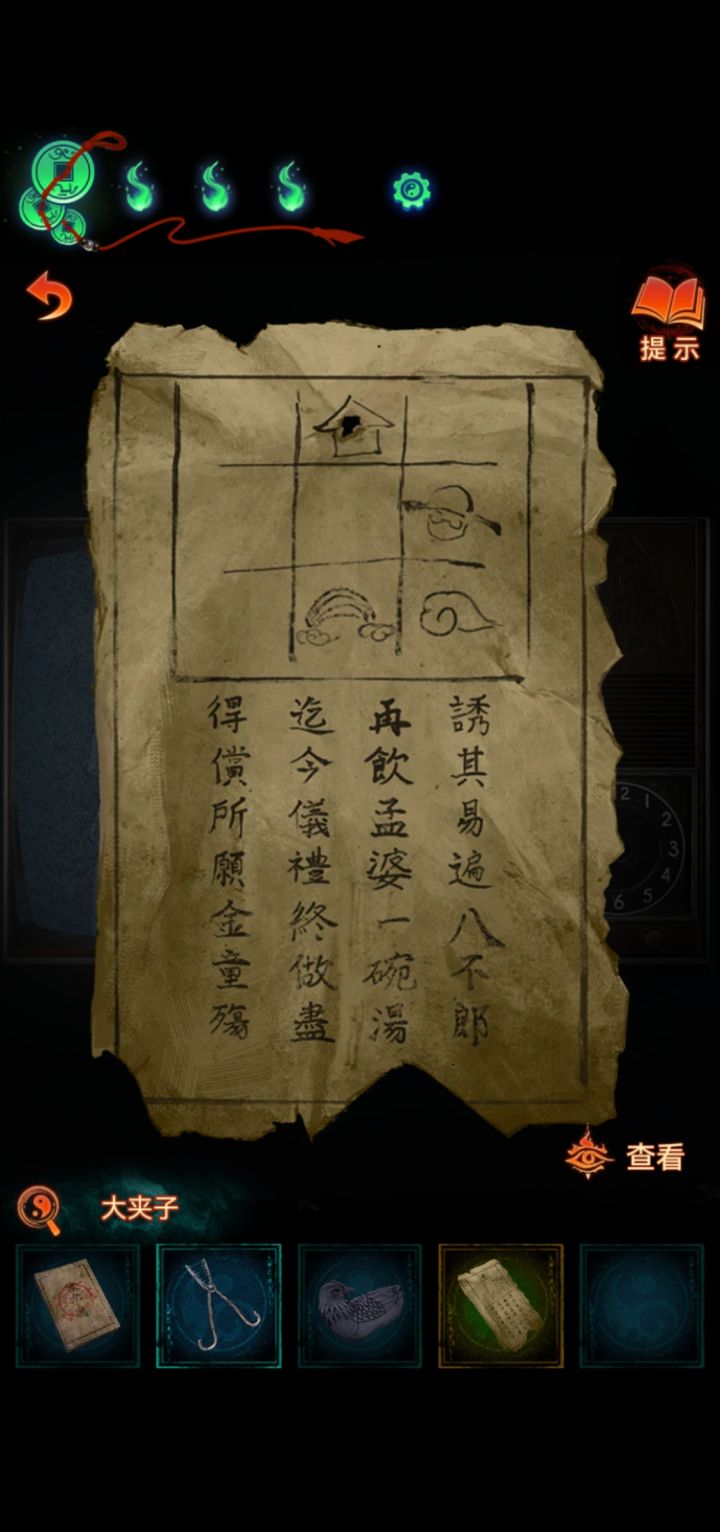 提示
誘其易遍八不郎
再飲孟婆一碗湯
迄今儀禮終做盡
得償所願金童殤
1
2
3
4
5
6
查看
大夹子